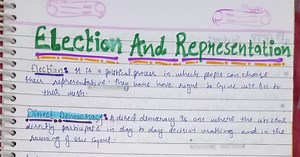 Election And Representation
Elections It is a political process in which people can choose
their representative. They have right to give vote acc to
their wish.
Direct Democracy A direct democracy is one where the citizens
directly participate in day to day decision making and in the
running of the Govt.